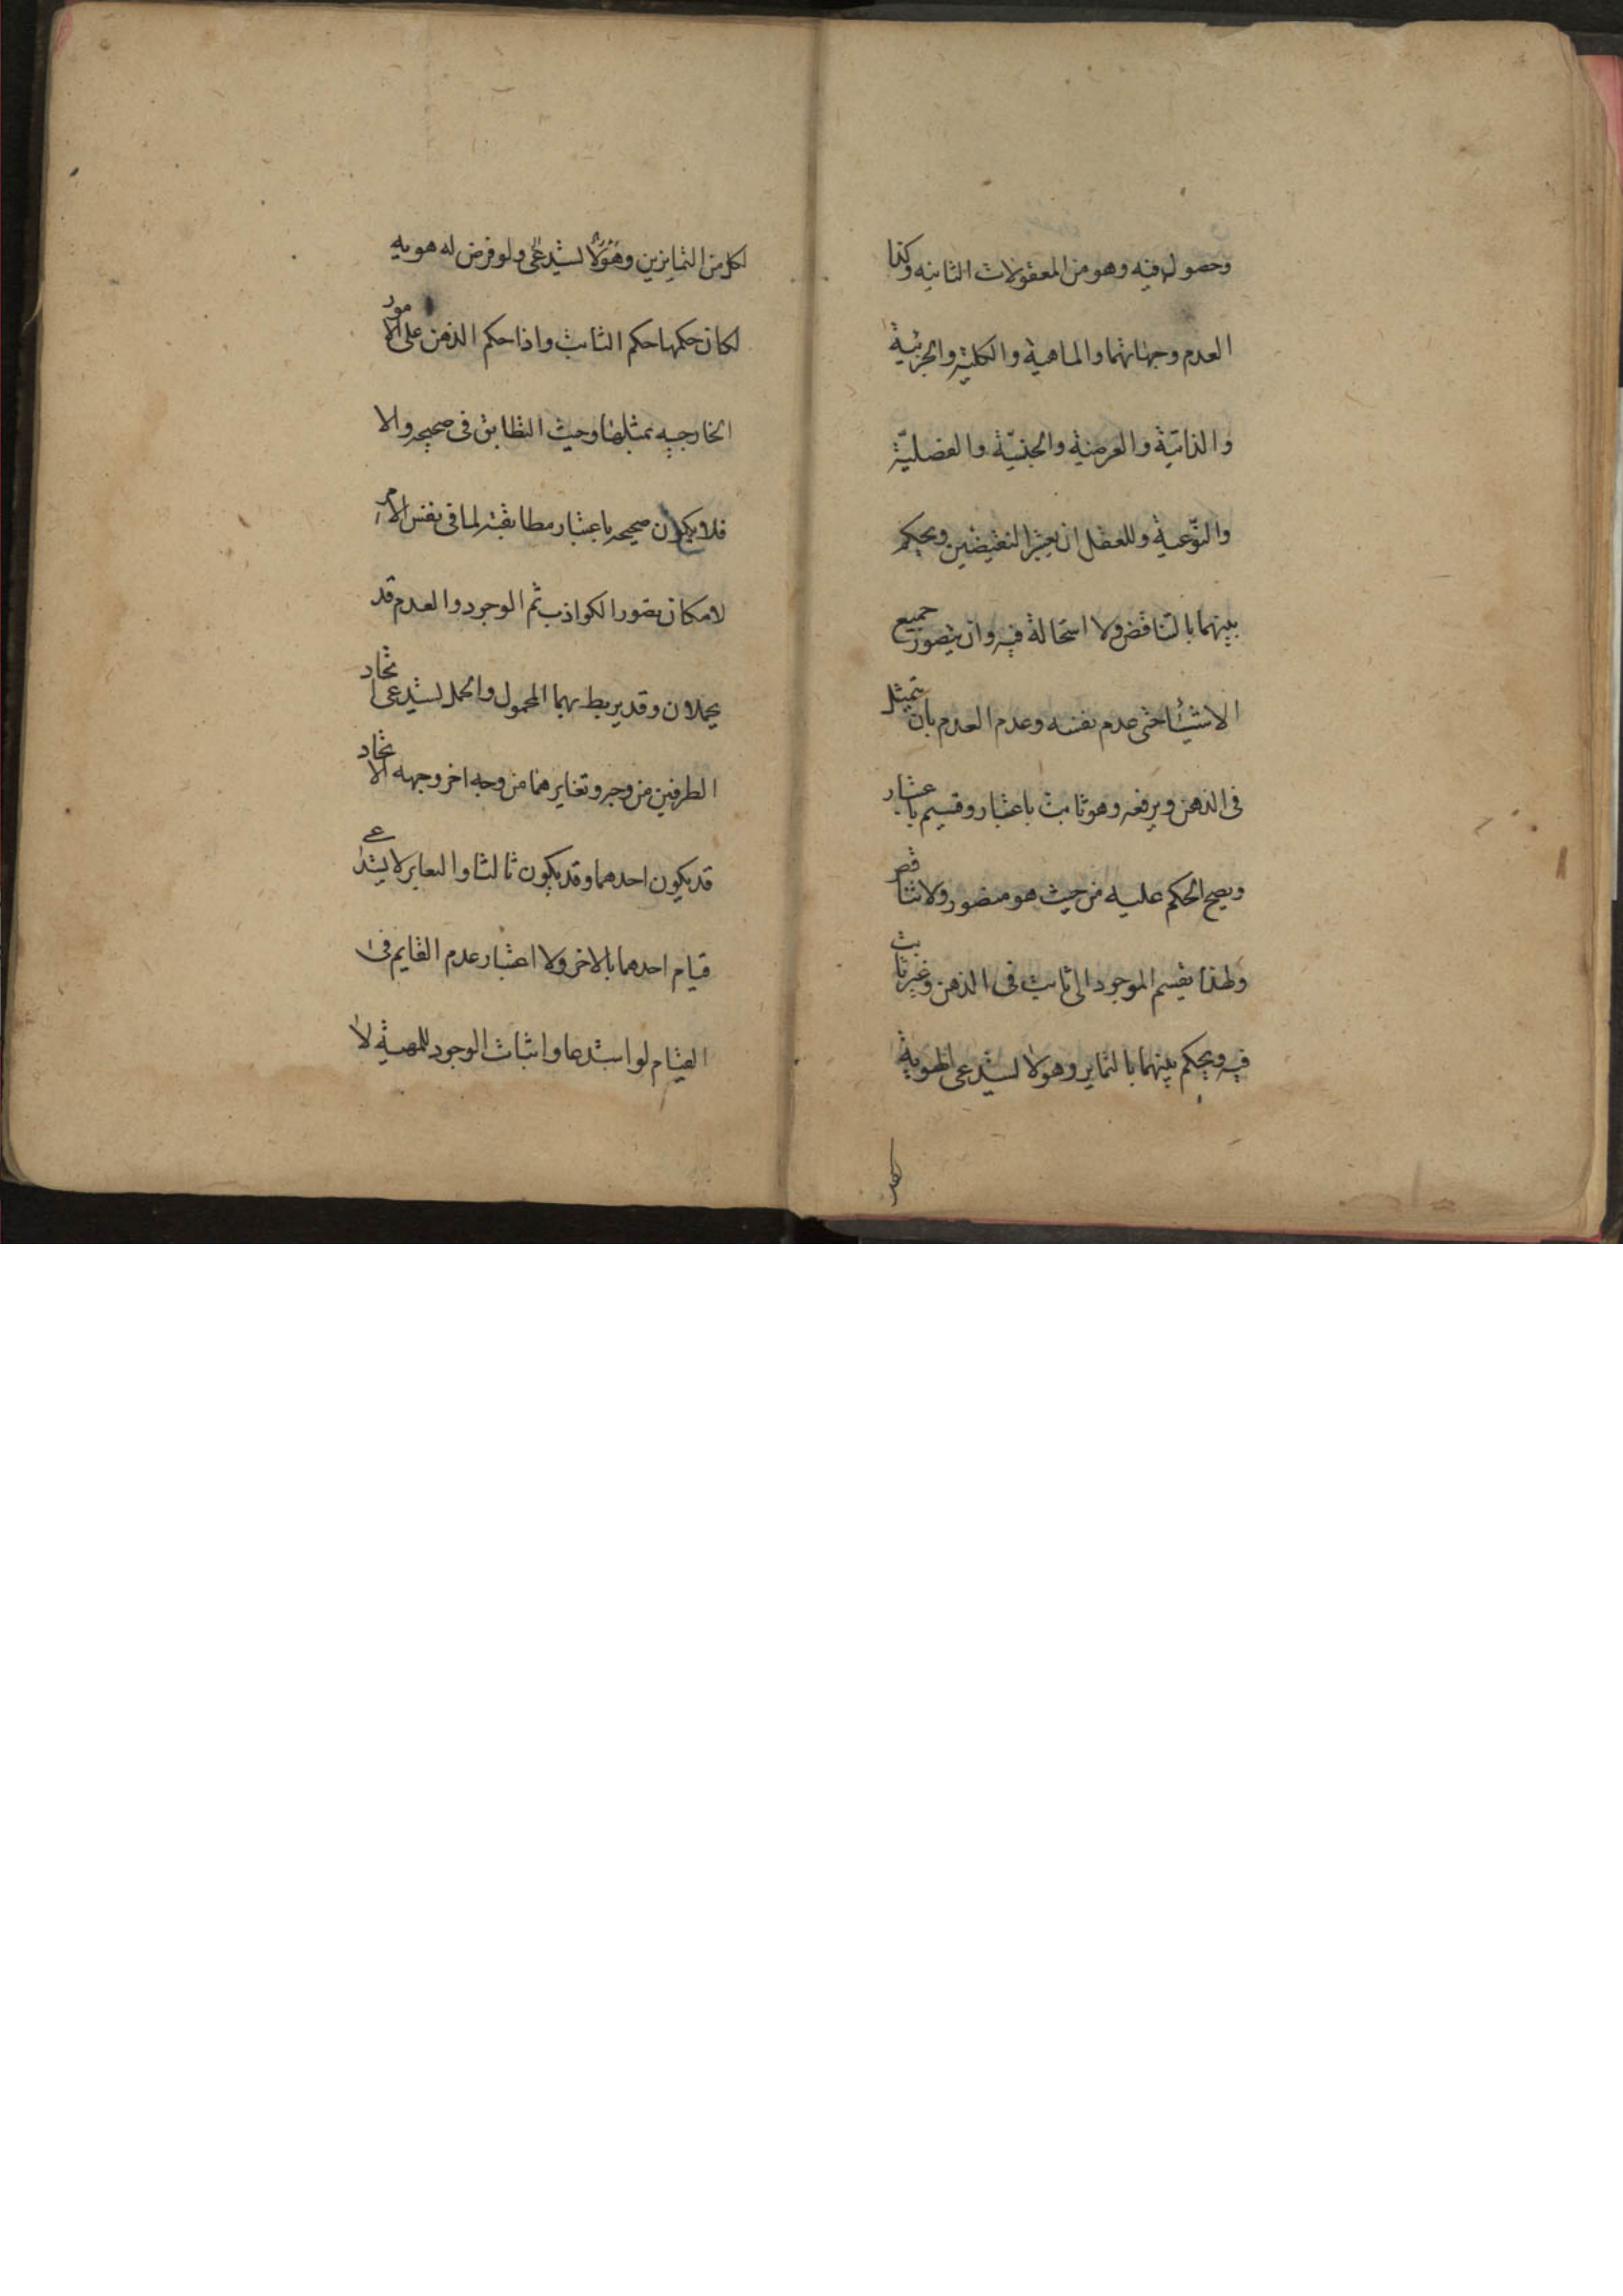 وحصوله فيه وهو من المعقولات الثانيه وكذا
العدم وجهاتهما والماهية والكلية والجزئية
والذاتيّة والعرضية والجنسيّة والفصليّة
والنّوعية وللعقل ان يعتبر النقيضين ويحكم
بينهما بالتناقض ولا استحالة فيه وان يتصور جميع
الاشيئا حتى عدم نفسه وعدم العدم بان يتمثل
فى الذهن ويرفعه وهو ثابت باعتبار وقسيم باعتبار
ويصح الحكم عليه من حيث هو متصور ولا تناقض
ولهذا نقسم الموجود الى ثابت فى الذهن وغير ثابت
فيه ويحكم بينهما بالتمايز وهو لا يستدعى الهوية
لكل من المتمايزين وهو لا يستدعى ولو فرض له هويه
لكان حكمها حكم الثابت واذا حكم الذهن على الامور
الخارجيه بمثلها وجب التطابق فى صحيحه والا
فلا يكون صحيحه باعتبار مطابقته لما فى نفس الامر
لامكان تصور الكواذب ثم الوجود والعدم قد
يحملان وقد يربط بهما المحمول والحمل يستدعى اتحاد
الطرفين من وجه وتغايرهما من وجه اخر وجهه الاتحاد
قد يكون احدهما وقد يكون ثالثا والتغاير لا يستدعى
قيام احدهما بالاخر ولا اعتبار عدم القايم فى
القيام لو استدعا واثبات الوجود للمهية لا